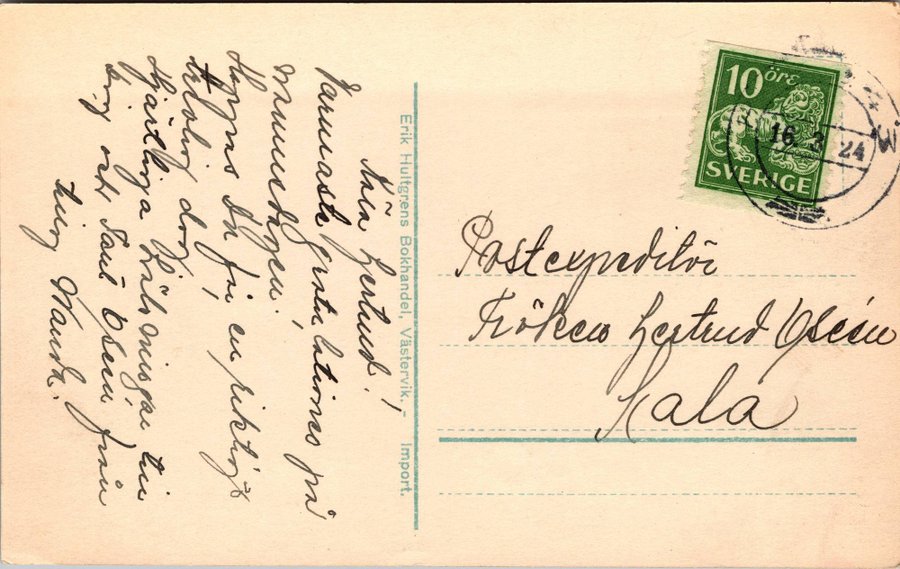 Kära Gertrud!
Varmaste gratulationer på
Namnsdagen!
Hoppas Du får en riktigt
trevlig dag,
Hjärtliga hälsningar till
Dig och Tant Olsén från
tillg Nanda.
Erik Hultgrens Bokhandel, Västervik. – Import.
10 öre
SVERIGE
16 3 24
Postexpeditör
Fröken Gertrud Olsén
Kala